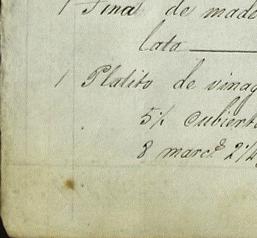 1 Tina de made
lata
1 Platito de vinag
5 1/2 Cubierto
8 marc.s 2 1/4